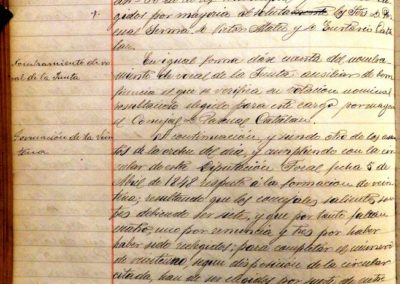 gidos por mayoría absoluta los Sres. D.
Román Serma. D. Victor Mateo y D. Eustasio
Nombramiento de vo-
cal de la Junta
En igual forma dase cuenta del nombra-
miento de vocal de la Junta auxiliar de
el que se verifica su votación nominal
resultando elegido para este cargo por mayoría
el Concejal D. Pascual Catalan.
Formación de la Vein-
tena
A continuación, y siendo otro de los asun-
tos de la orden del día, y cumpliendo con la cir-
cular de esta Diputación Foral fecha 5 de
Abril de 1848 respecto á la formación de vein-
tena; resultando que los concejales salientes
debiendo ser seis, y que por tanto faltan
cuatro; uno por renuncia y tres por haber
haber sido reelegidos; para completar el número
de veintena, según disposición de la circular
citada, han de ser elegidos por suerte de entre